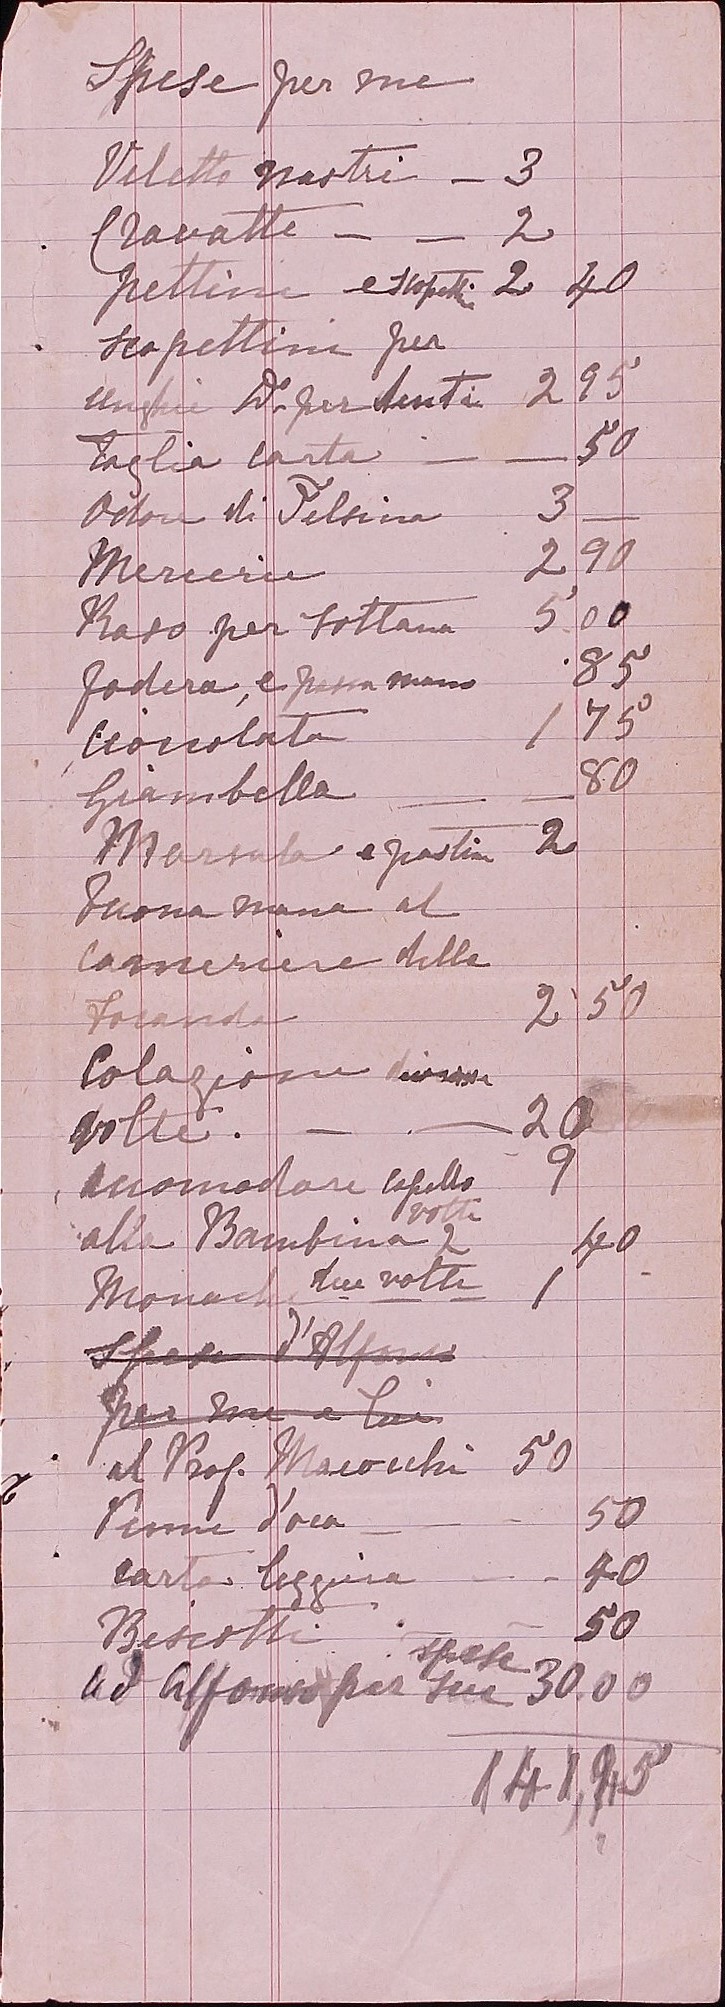 Spese per me
Veletto nastri — 3
Cravatte — — 2
pettini e scopetti 2 40
scopettini per
unghie D.º per denti 2 95
Taglia carta — — 50
Odore di Felsina 3 —
Mercerie 2 90
Raso per sottana 5 00
fodera, e passamano 85
Cioccolata 1 75
Giambella — — 80
Marsala e pastine 2
buona mana al
cameriere della
locanda 2 50
Colazione diverse
volte. — — 20
accomodare capello 9
volte
alla Bambina 2 40
Monache due volte 1
Spese d'Alfonso
per me e lui
al Prof. Macocchi 50
Penne d'oca — - - 50
carta leggera - - 40
Biscotti - - 50
spese
ad Alfonso per sue 30.00
141,45